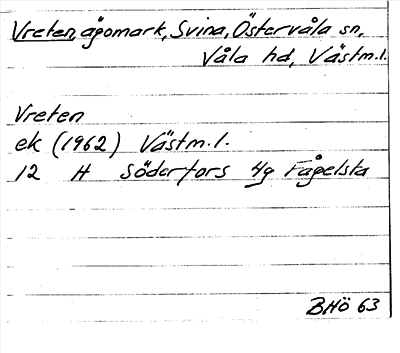 Vreten, ägomark, Svina, Östervåla sn,
Våla hd, Västm.l.
Vreten
ek (1962) Västm.l.
12 H Söderfors 4g Fågelsta
BHö 63